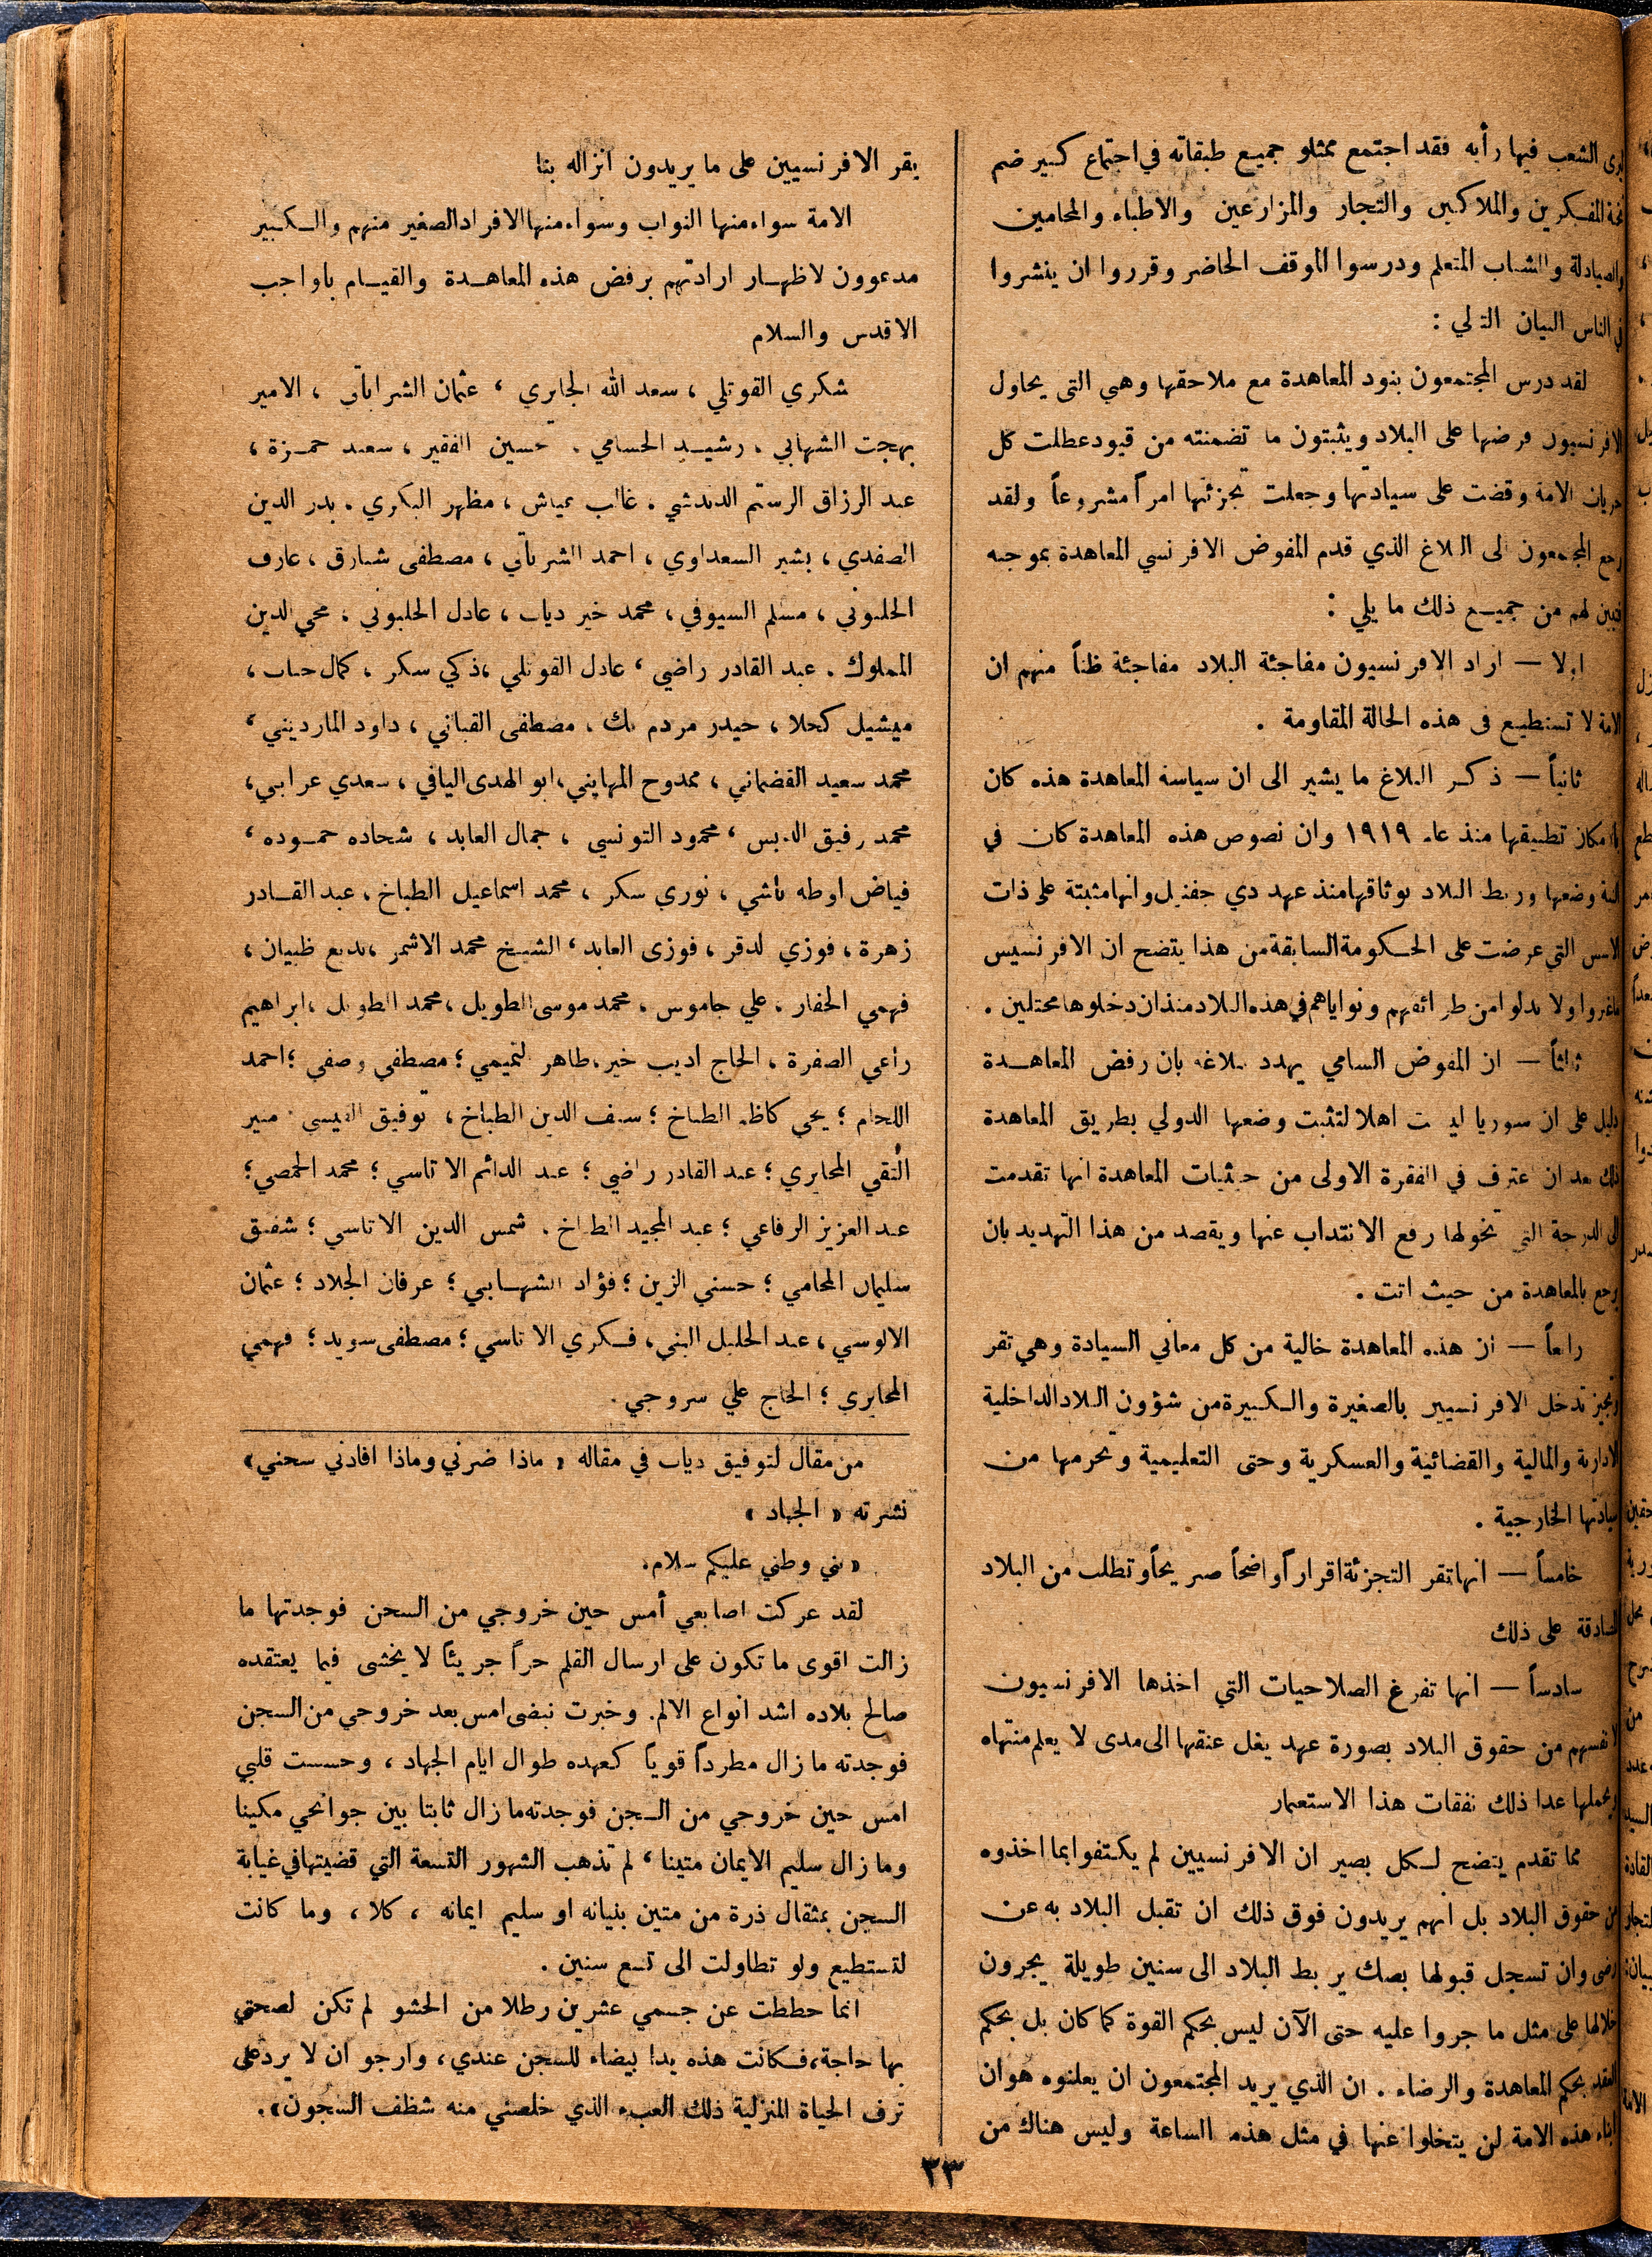 يرى الشعب فيها رأيه فقد اجتمع ممثلو جميع طبقاته في اجتماع كبير ضم
نخبة المفكرين والملاكين والتجار والمزارعين والاطباء والمحامين
والصيادلة والشباب المتعلم ودرسوا الموقف الحاضر وقرروا ان ينشروا
في الناس البيان التالي :
لقد درس المجتمعون بنود المعاهدة مع ملاحقها وهي التى يحاول
الافرنسيون فرضها على البلاد ويثبتون ما تضمنته من قيود عطلت كل
حريات الامة وقضت على سيادتها وجعلت تجزئتها امراً مشروعاً ولقد
رجع المجتمعون الى البلاغ الذي قدم المفوض الافرنسي المعاهدة بموجبه
فتبين لهم من جميع ذلك ما يلي :
اولا — اراد الافرنسيون مفاجئة البلاد مفاجئة ظناً منهم ان
الامة لا تستطيع فى هذه الحالة المقاومة .
ثانياً — ذكر البلاغ ما يشير الى ان سياسة المعاهدة هذه كان
بالامكان تطبيقها منذ عام ١٩١٩ وان نصوص هذه المعاهدة كان في
النية وضعها وربط البلاد بوثاقها منذ عهد دي جفنيل وانها مثبتة على ذات
الاسس التي عرضت على الحكومة السابقة من هذا يتضح ان الافرنسيين
ماغيروا ولا بدلوا من طرائقهم ونواياهم في هذه البلاد منذ ان دخلوها محتلين .
ثالثاً — ان المفوض السامي يهدد ببلاغه بان رفض المعاهدة
دليل على ان سوريا ليست اهلا لتثبت وضعها الدولي بطريق المعاهدة
ذلك بعد ان اعترف في الفقرة الاولى من حيثيات المعاهدة انها تقدمت
الى الدرجة التي تخولها رفع الانتداب عنها ويقصد من هذا التهديد بان
يرجع بالمعاهدة من حيث اتت .
رابعاً — ان هذه المعاهدة خالية من كل معاني السيادة وهي تقر
وتجيز تدخل الافرنسيين بالصغيرة والكبيرة من شؤون البلاد الداخلية
الادارية والمالية والقضائية والعسكرية وحتى التعليمية وتحرمها من
سيادتها الخارجية .
خامساً — انها تقر التجزئة اقراراً واضحاً صريحاً وتطلب من البلاد
المصادقة على ذلك
سادساً — انها تفرغ الصلاحيات التي اخذها الافرنسيون
لانفسهم من حقوق البلاد بصورة عهد يغل عنقها الى مدى لا يعلم منتهاه
ويحملها عدا ذلك نفقات هذا الاستعمار
مما تقدم يتضح لكل بصير ان الافرنسيين لم يكتفوا بما اخذوه
من حقوق البلاد بل انهم يريدون فوق ذلك ان تقبل البلاد به عن
رضى وان تسجل قبولها بصك يربط البلاد الى سنين طويلة يجرون
خلالها على مثل ما جروا عليه حتى الآن ليس بحكم القوة كما كان بل بحكم
العقد بحكم المعاهدة والرضاء . ان الذي يريد المجتمعون ان يعلنوه هو ان
ابناء هذه الامة لن يتخلوا عنها في مثل هذه الساعة وليس هناك من
يقر الافرنسيين على ما يريدون انزاله بنا
الامة سواء منها النواب وسواء منها الافراد الصغير منهم والكبير
مدعوون لاظهار ارادتهم برفض هذه المعاهدة والقيام بالواجب
الاقدس والسلام
شكري القوتلي ، سعد الله الجابري ، عثمان الشراباتي ، الامير
بهجت الشهابي ، رشيد الحسامي ، تحسين الفقير ، سعيد حمزة ،
عبد الرزاق الرستم الدندشي . غالب عياش ، مظهر البكري . بدر الدين
الصفدي ، بشير السعداوي ، احمد الشرباتي ، مصطفى شبارق ، عارف
الحلبوني ، مسلم السيوفي ، محمد خير دياب ، عادل الحلبوني . محي الدين
المملوك . عبد القادر راضي ، عادل القوتلي ، ذكي سكر ، كمال حباب ،
ميشيل كحلا ، حيدر مردم بك ، مصطفى القباني ، داود المارديني ،
محمد سعيد القضماني ، ممدوح المهايني ، ابو الهدى اليافي ، سعدي عرابي ،
محمد رفيق الدبس ، محمود التونسي ، جمال العابد ، شحاده حموده ،
فياض اوطه باشي ، نوري سكر ، محمد اسماعيل الطباخ ، عبد القادر
زهرة ، فوزي لدقر ، فوزى العابد ، الشيخ محمد الاشمر ، بديع ظبيان ،
فهمي الحفار . علي جاموس . محمد موسى الطويل ، محمد الطويل ، ابراهيم
راعي الصفرة ، الحاج اديب خير ، طاهر التميمي ؛ مصطفى وصفي ؛ احمد
اللحام ؛ يحي كاظم الطباخ ؛ سيف الدين الطباخ ، توفيق القيسي ، منير
التقي المحايري ؛ عبد القادر راضي ؛ عبد الدائم الاتاسي ؛ محمد الحمصي ؛
عبد العزيز الرفاعي ؛ عبد المجيد الطباخ . شمس الدين الاتاسي ؛ شفيق
سليمان المحامي ؛ حسني الزين ؛ فؤاد الشهابي ؛ عرفان الجلاد ؛ عثمان
الالوسي ، عبد الجليل البني ، فكري الاتاسي ؛ مصطفى سويد ؛ فهمي
المحايري ؛ الحاج علي سروجي .
من مقال لتوفيق دياب في مقاله « ماذا ضرني وماذا افادني سجني»
نشرته « الجهاد »
« بني وطني عليكم سلام .
لقد عركت اصابعي أمس حين خروجي من السجن فوجدتها ما
زالت اقوى ما تكون على ارسال القلم حراً جريئاً لا يخشى فيما يعتقده
صالح بلاده اشد انواع الالم . وخبرت نبضى امس بعد خروجي من السجن
فوجدته ما زال مطرداً قوياً كعهده طوال ايام الجهاد ، وحسست قلبي
امس حين خروجي من السجن فوجدته ما زال ثابتا بين جوانحي مكينا
وما زال سليم الايمان متينا ، لم تذهب الشهور التسعة التي قضيتها في غيابة
السجن بمثقال ذرة من متين بنيانه او سليم ايمانه ، كلا ، وما كانت
لتستطيع ولو تطاولت الى تسع سنين .
انما حططت عن جسمي عشرين رطلا من الحشو لم تكن لصحتي
بها حاجة ، فكانت هذه يدا بيضاء للسجن عندي ، وارجو ان لا يرد على
ترف الحياة المنزلية ذلك العبء الذي خلصني منه شظف السجون» .
٢٣